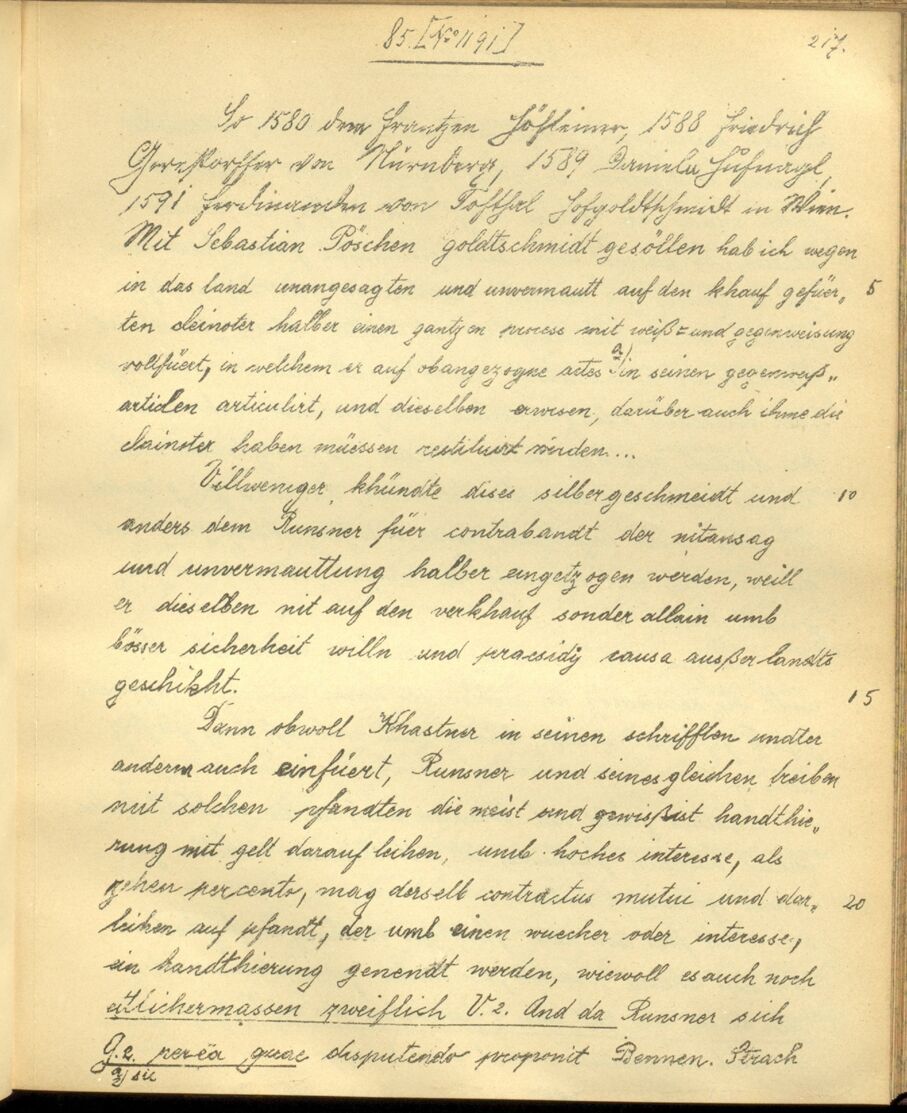 85. [No 1191]
217.
So 1580 dem Frantzen Höfsteiner, 1588 Friedrich
von Nürnberg, 1589 Daniela Hufnagl,
1591 Ferdinanden von Hofgoldtschmidt in Wien.
Mit Sebastian Pöschen goldtschmidt gesöllen hab ich wegen
in das land unangesagten und unvermautt auf den khauf gefüer„ 5
ten cleinoter halber einen gantzen process mit weiß= und gegenweisung
vollfüert, in welchem er auf obangezogne actes a) in seinen gegenweiß„
articlen articulirt, und dieselben erwisen, darüber auch ihme die
clainoter haben müessen restituirt werden...
Villweniger khündte dises silbergeschmeidt und 10
anders dem Runsner füer contrabandt der nitansag
und unvermauttung halber eingetzogen werden, weill
er dieselben nit auf den verkhauf sonder allain umb
bösser sicherheit willn und praesidij causa außer landts
geschikht. 15
Dann obwoll Khastner in seinen schrifften undter
anderm auch einfüert, Runsner und seines gleichen treiben
mit solchen pfandten die meist und gewißist handthie„
rung mit gelt darauf leihen, umb hoches interesse, als
zehen percento, mag derselb contractus mutui und dar„ 20
leihen auf pfandt, der umb einen wuecher oder interesse,
ein handthierung genendt werden, wiewoll es auch noch
etlichermassen zweiflich V. 2. And da Runsner sich
G. 2. per ea quae disputendo proponit Bennen. Strach
a) sic